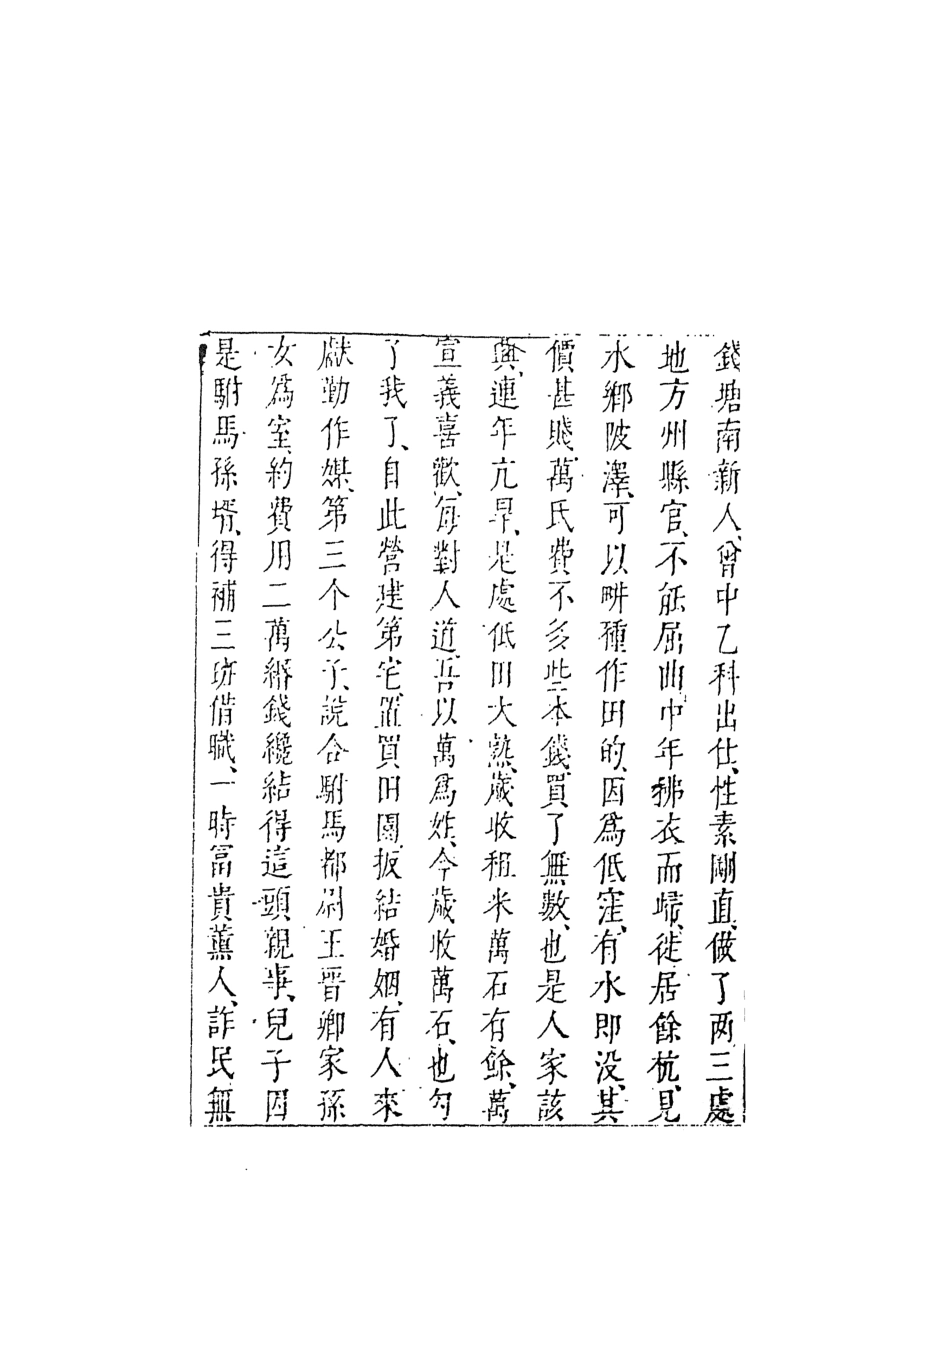 錢塘南新人、曾中乙科出仕、性素剛直、做了两三處
地方州縣官、不能屈曲、中年拂衣而歸、徙居餘杭、見
水鄉陂澤、可以畊種作田的、因爲低窪、有水即没、其
價甚賤、萬氏費不多些本錢、買了無數、也是人家該
興、連年亢旱、是處低田大熟、歲收租米萬石有餘、萬
宣義喜歡、每對人道、吾以萬爲姓、今歲收萬石、也勾
了我了、自此營建第宅、置買田園、扳結婚姻、有人來
獻勤作媒、第三个公子、說合駙馬都尉王晋卿家孫
女爲室、約費用二萬緡錢、纔結得這頭親事、兒子因
是駙馬孫壻、得補三班借職、一時富貴薰人、詐民無